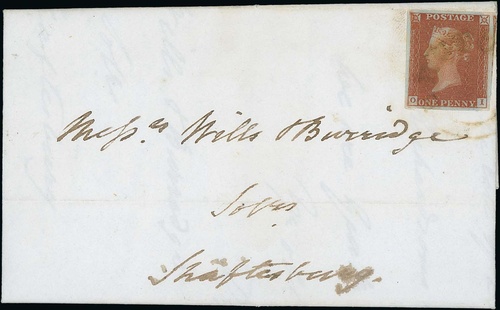 POSTAGE
O ONE PENNY I
Messrs Wills & Burridge
Solrs
Shaftesbury.